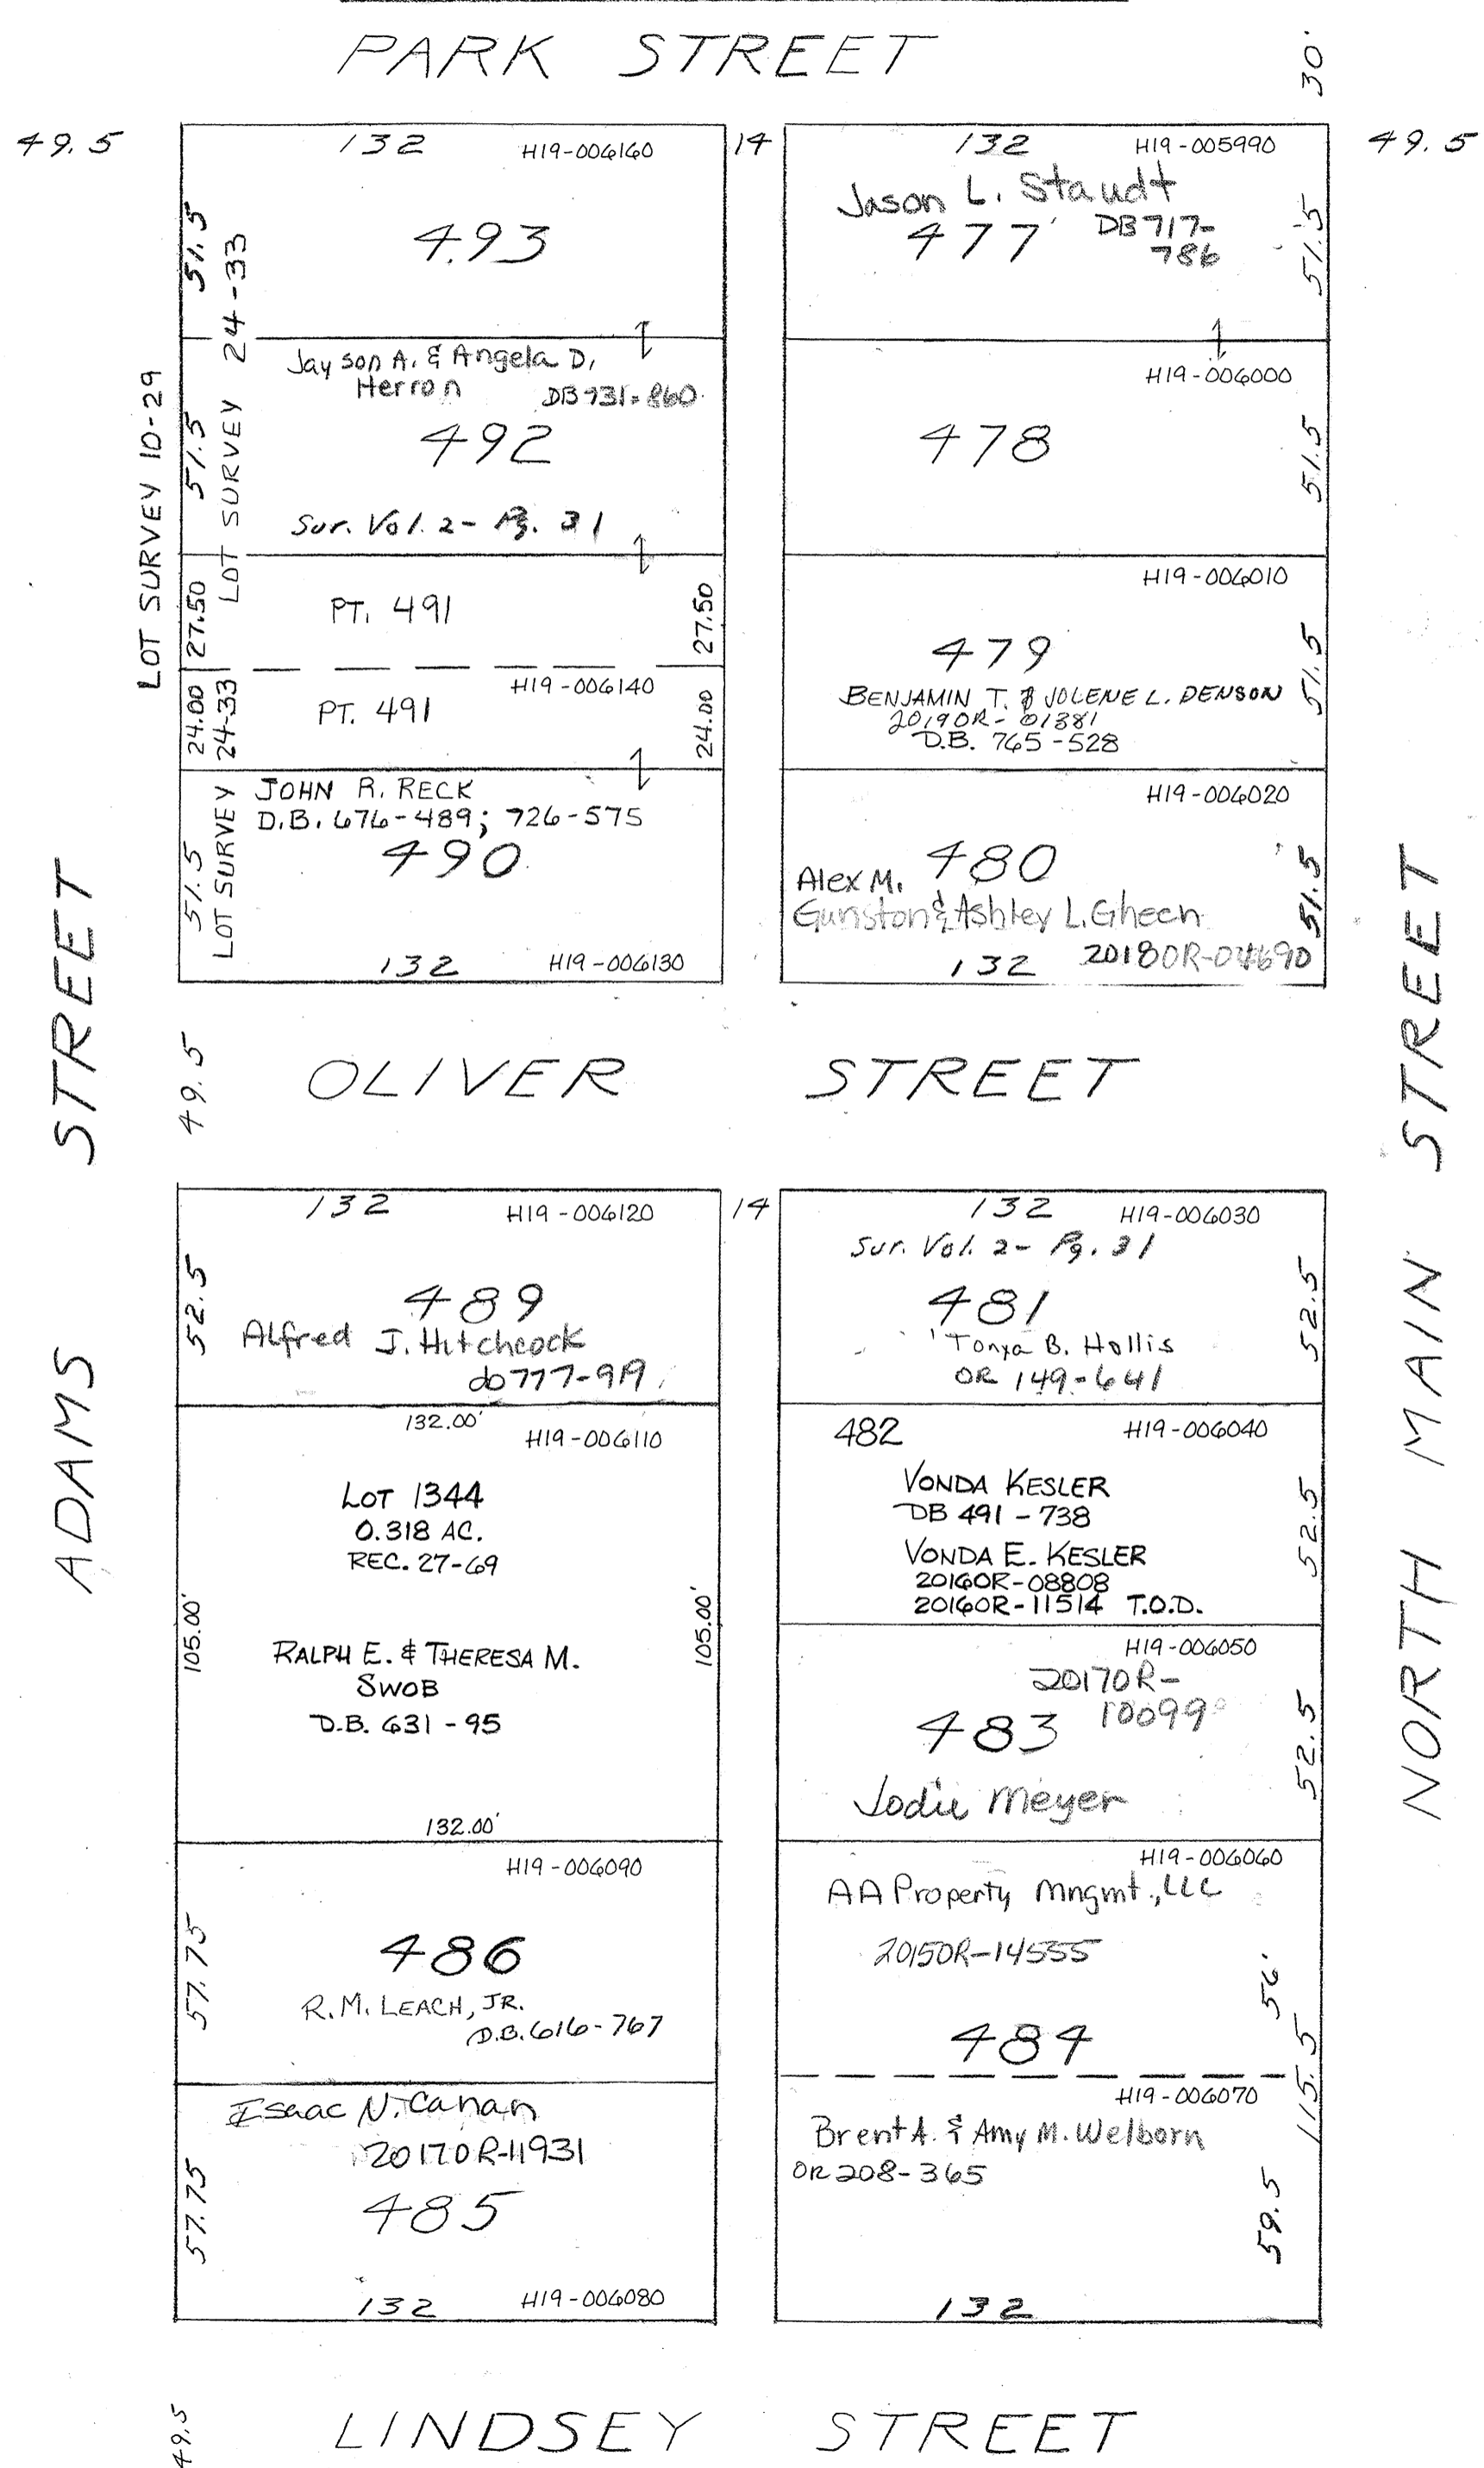 PARK STREET
30'
49.5
132 H19-006160
14
132 H19-005990
49.5
51.5
493
Jason L. Staudt
477 DB717-
786
51.5
LOT SURVEY 10-29
LOT SURVEY 24-33
51.5
Jayson A. & Angela D.
Herron DB931-860
492
Sur. Vol. 2- Pg. 31
H19-006000
478
51.5
27.50
PT. 491
27.50
H19-006010
479
BENJAMIN T. & JOLENE L. DENSON
20190R-01381
D.B. 765-528
51.5
24.00
LOT SURVEY 24-33
H19-006140
PT. 491
24.00
JOHN R. RECK
D.B. 676-489; 726-575
490
51.5
132 H19-006130
H19-006020
480
Alex M.
Gunston & Ashley L. Gheen
132 20180R-04690
51.5
ADAMS STREET
49.5
OLIVER STREET
NORTH MAIN STREET
132 H19-006120
14
132 H19-006030
52.5
489
Alfred J. Hitchcock
db777-919
Sur. Vol. 2- Pg. 31
481
Tonya B. Hollis
OR 149-641
52.5
132.00'
H19-006110
LOT 1344
0.318 AC.
REC. 27-69
105.00'
105.00'
RALPH E. & THERESA M.
SWOB
D.B. 631-95
132.00'
482 H19-006040
VONDA KESLER
DB 491-738
VONDA E. KESLER
20160R-08808
20160R-11514 T.O.D.
52.5
H19-006050
20170R-
10099
483
Jodie Meyer
52.5
H19-006090
57.75
486
R.M. LEACH, JR.
D.B. 616-767
H19-006060
AA Property Mngmt., LLC
20150R-14555
56'
484
115.5
Isaac N. Canan
20170R-11931
57.75
485
132 H19-006080
H19-006070
Brent A. & Amy M. Welborn
OR 208-365
59.5
132
49.5
LINDSEY STREET